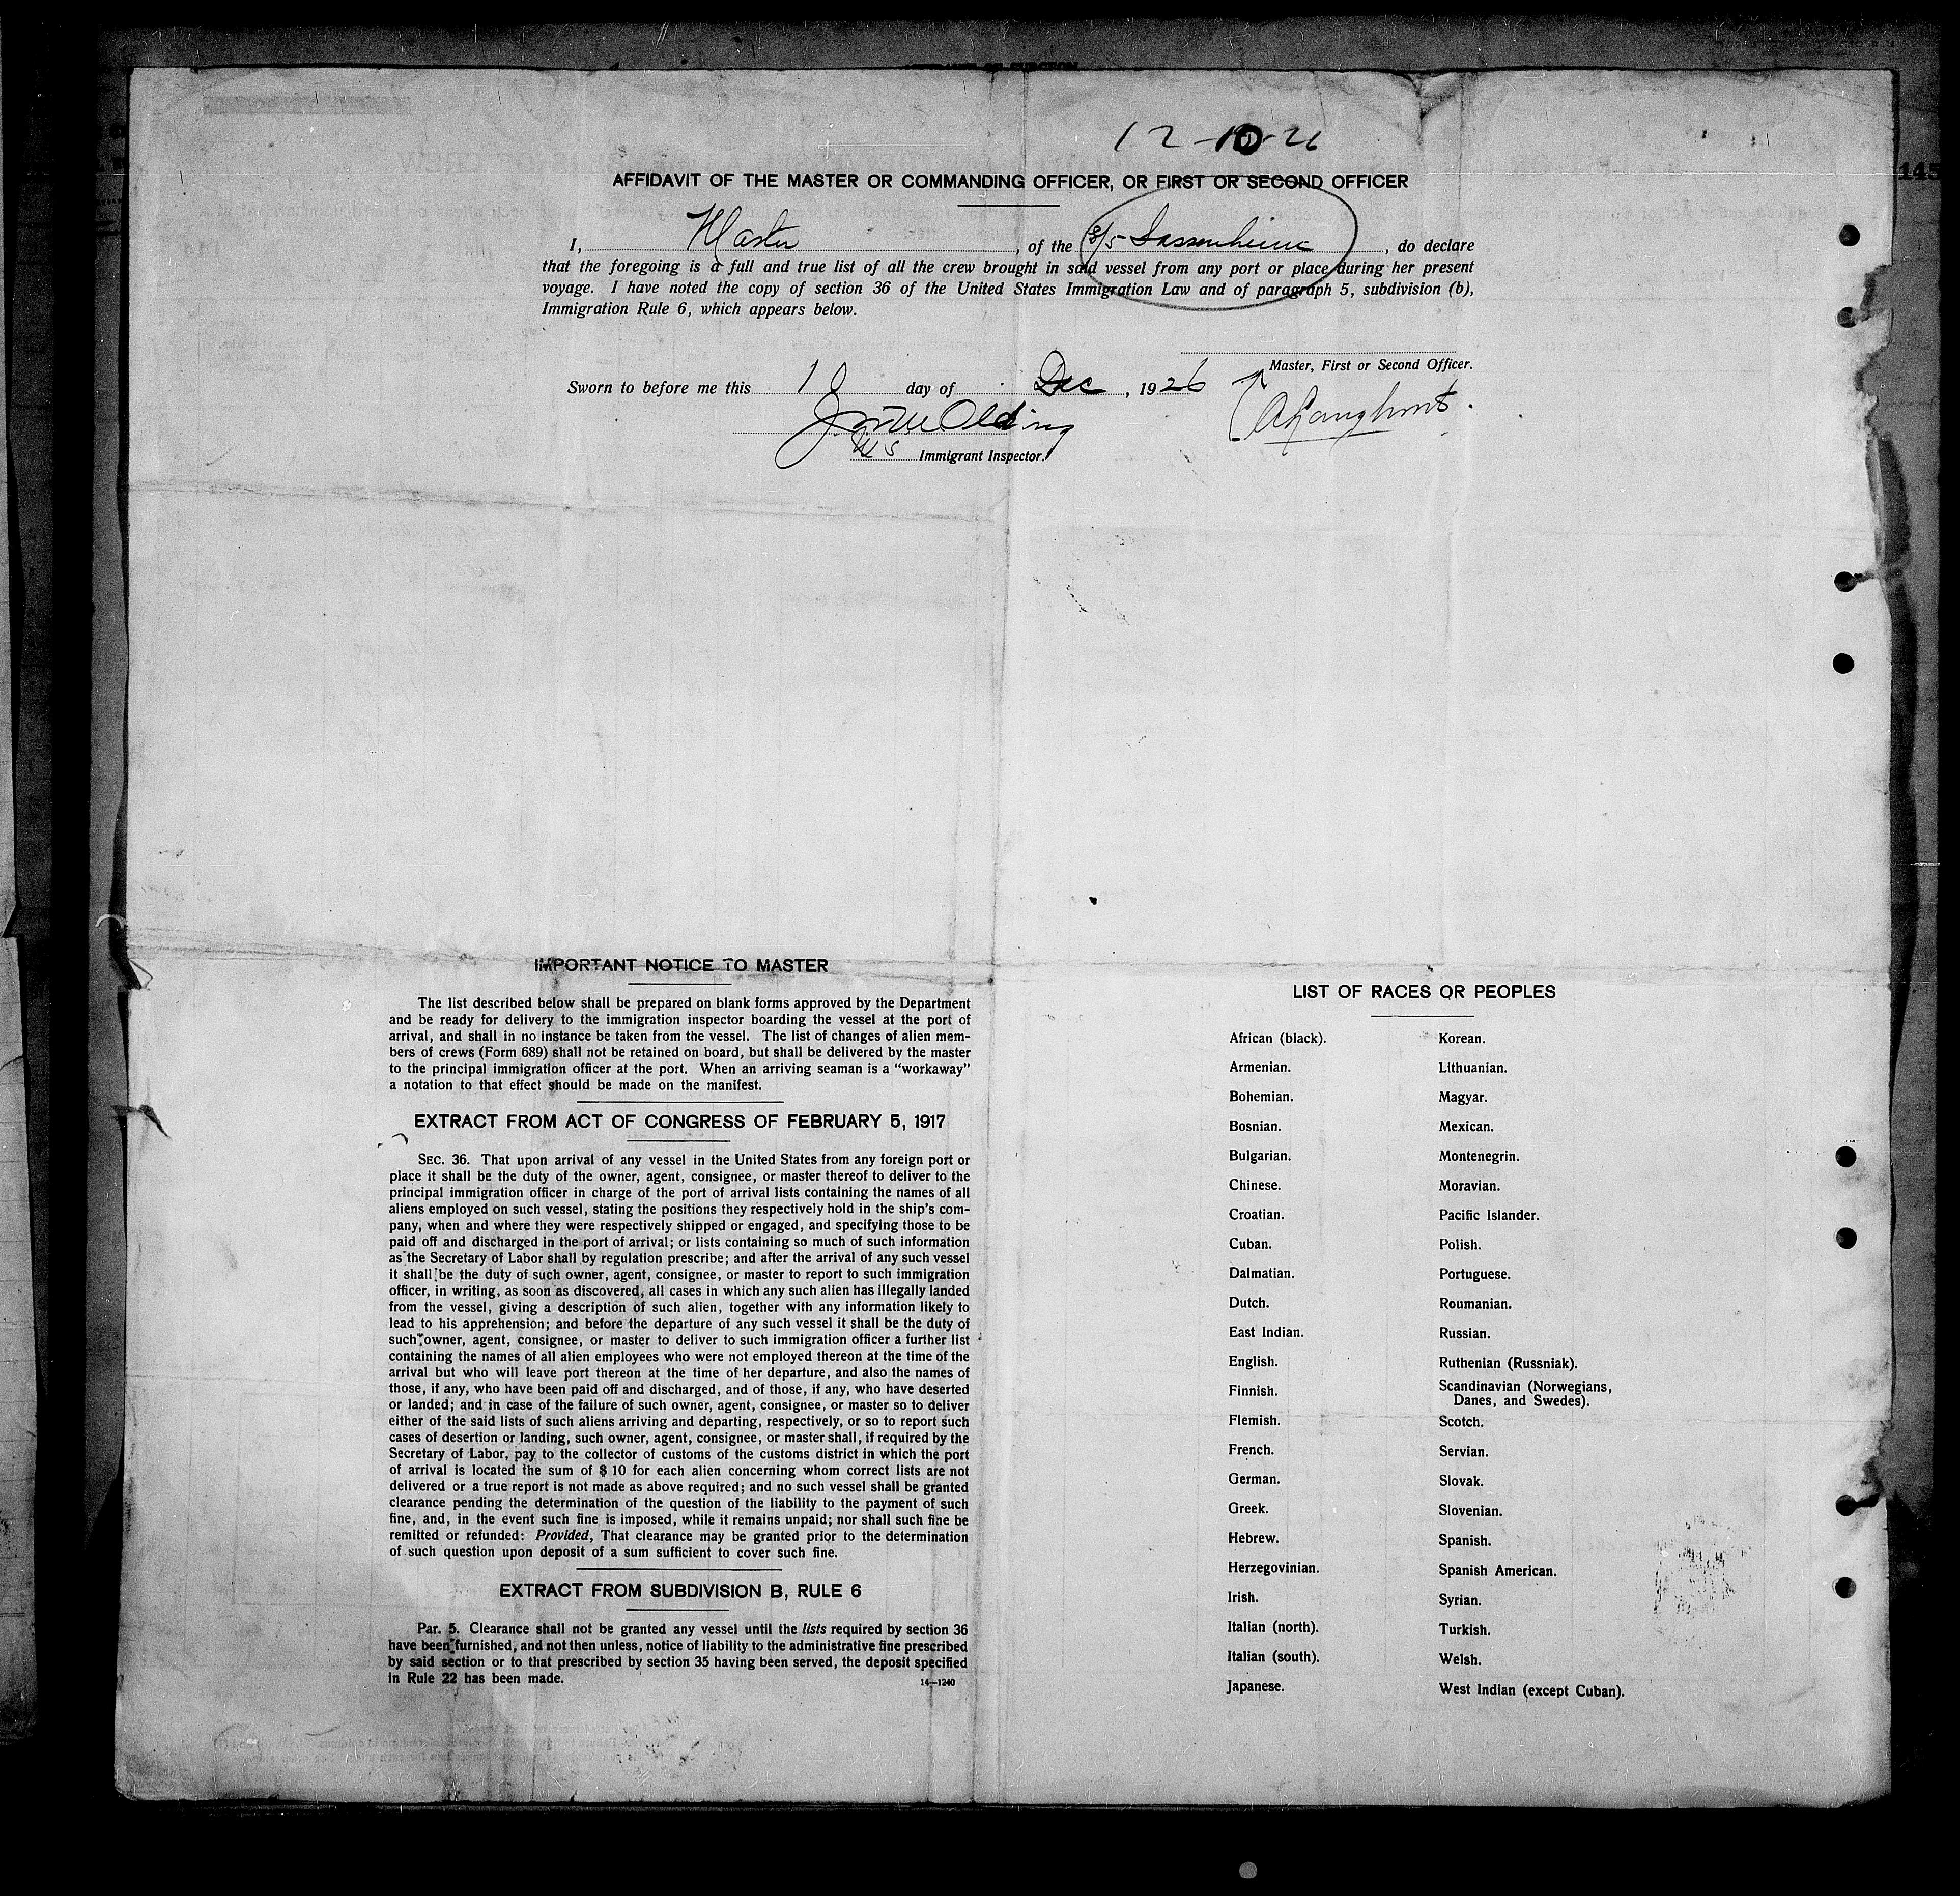 12-10-26
AFFIDAVIT OF THE MASTER OR COMMANDING OFFICER, OR FIRST OR SECOND OFFICER
I, Master, of the S/S Sassenheim, do declare
that the foregoing is a full and true list of all the crew brought in said vessel from any port or place during her present
voyage. I have noted the copy of section 36 of the United States Immigration Law and of paragraph 5, subdivision (b),
Immigration Rule 6, which appears below.
Master, First or Second Officer.
Sworn to before me this 10 day of Dec, 1926
US Immigrant Inspector.
IMPORTANT NOTICE TO MASTER
The list described below shall be prepared on blank forms approved by the Department
and be ready for delivery to the immigration inspector boarding the vessel at the port of
arrival, and shall in no instance be taken from the vessel. The list of changes of alien mem-
bers of crews (Form 689) shall not be retained on board, but shall be delivered by the master
to the principal immigration officer at the port. When an arriving seaman is a "workaway"
a notation to that effect should be made on the manifest.
EXTRACT FROM ACT OF CONGRESS OF FEBRUARY 5, 1917
SEC. 36. That upon arrival of any vessel in the United States from any foreign port or
place it shall be the duty of the owner, agent, consignee, or master thereof to deliver to the
principal immigration officer in charge of the port of arrival lists containing the names of all
aliens employed on such vessel, stating the positions they respectively hold in the ship's com-
pany, when and where they were respectively shipped or engaged, and specifying those to be
paid off and discharged in the port of arrival; or lists containing so much of such information
as the Secretary of Labor shall by regulation prescribe; and after the arrival of any such vessel
it shall be the duty of such owner, agent, consignee, or master to report to such immigration
officer, in writing, as soon as discovered, all cases in which any such alien has illegally landed
from the vessel, giving a description of such alien, together with any information likely to
lead to his apprehension; and before the departure of any such vessel it shall be the duty of
such owner, agent, consignee, or master to deliver to such immigration officer a further list
containing the names of all alien employees who were not employed thereon at the time of the
arrival but who will leave port thereon at the time of her departure, and also the names of
those, if any, who have been paid off and discharged, and of those, if any, who have deserted
or landed; and in case of the failure of such owner, agent, consignee, or master so to deliver
either of the said lists of such aliens arriving and departing, respectively, or so to report such
cases of desertion or landing, such owner, agent, consignee, or master shall, if required by the
Secretary of Labor, pay to the collector of customs of the customs district in which the port
of arrival is located the sum of $10 for each alien concerning whom correct lists are not
delivered or a true report is not made as above required; and no such vessel shall be granted
clearance pending the determination of the question of the liability to the payment of such
fine, and, in the event such fine is imposed, while it remains unpaid; nor shall such fine be
remitted or refunded: Provided, That clearance may be granted prior to the determination
of such question upon deposit of a sum sufficient to cover such fine.
EXTRACT FROM SUBDIVISION B, RULE 6
Par. 5. Clearance shall not be granted any vessel until the lists required by section 36
have been furnished, and not then unless, notice of liability to the administrative fine prescribed
by said section or to that prescribed by section 35 having been served, the deposit specified
in Rule 22 has been made.
14—1240
LIST OF RACES OR PEOPLES
African (black).
Armenian.
Bohemian.
Bosnian.
Bulgarian.
Chinese.
Croatian.
Cuban.
Dalmatian.
Dutch.
East Indian.
English.
Finnish.
Flemish.
French.
German.
Greek.
Hebrew.
Herzegovinian.
Irish.
Italian (north).
Italian (south).
Japanese.
Korean.
Lithuanian.
Magyar.
Mexican.
Montenegrin.
Moravian.
Pacific Islander.
Polish.
Portuguese.
Roumanian.
Russian.
Ruthenian (Russniak).
Scandinavian (Norwegians,
Danes, and Swedes).
Scotch.
Servian.
Slovak.
Slovenian.
Spanish.
Spanish American.
Syrian.
Turkish.
Welsh.
West Indian (except Cuban).
145